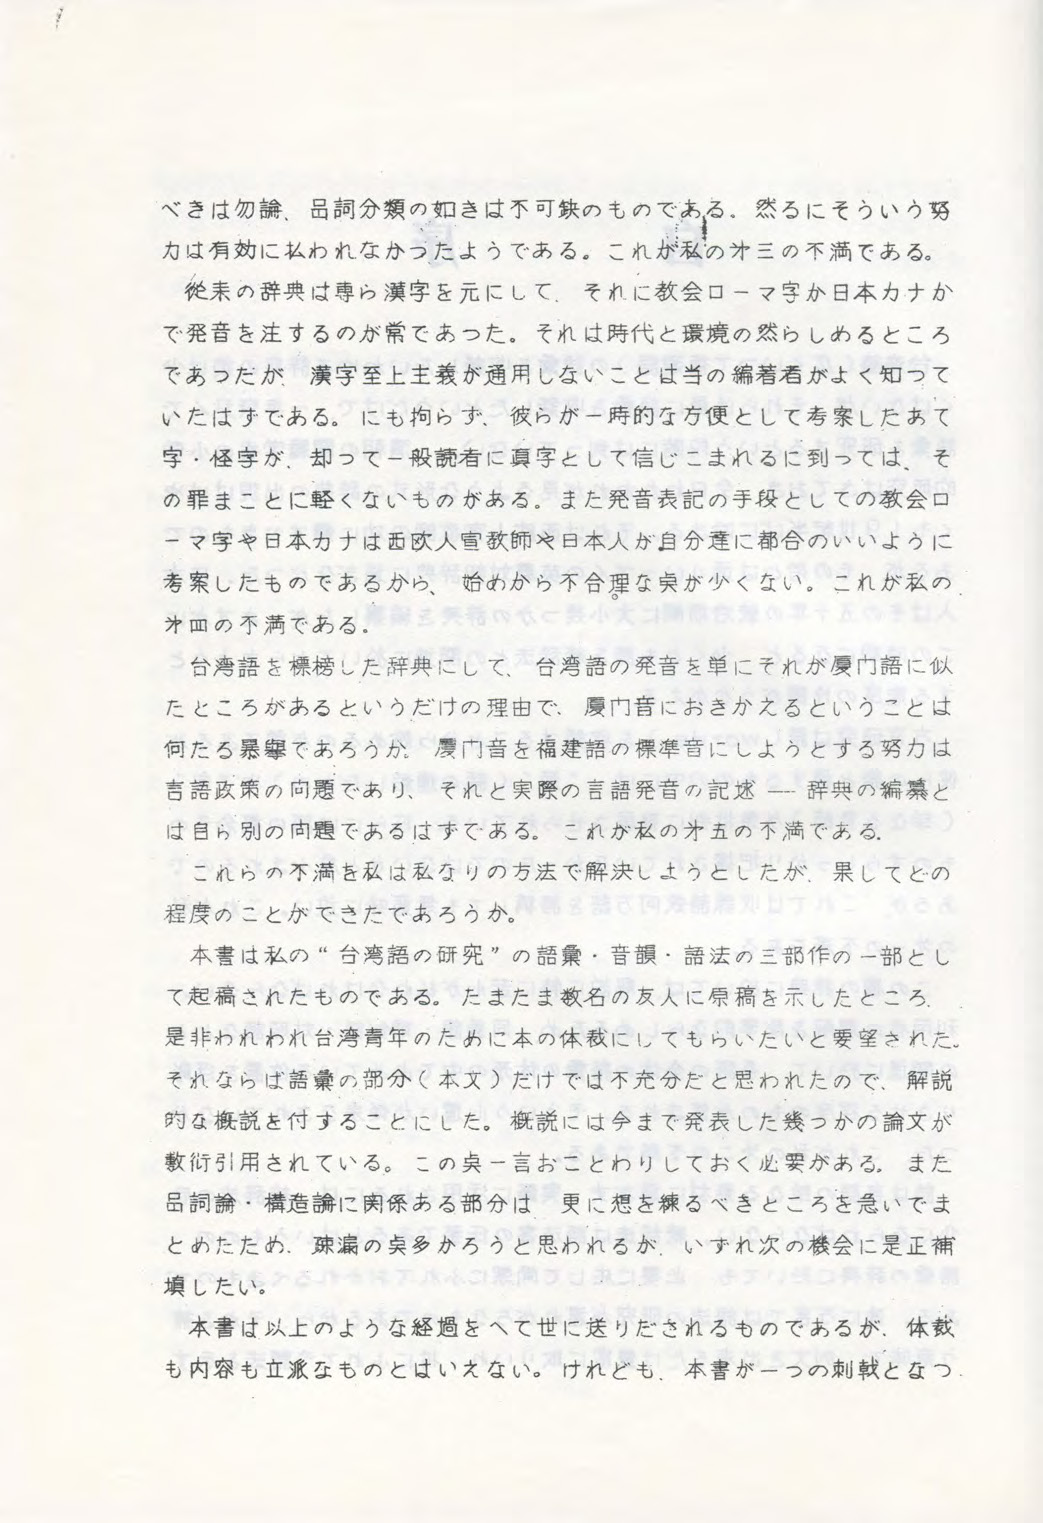 べきは勿論、品詞分類の如きは不可欠のものである。然るにそういう努
力は有効に払われなかったようである。これが私の才三の不満である。
従来の辞典は専ら漢字を元にして、それに教会ローマ字か日本カナか
で発音を注するのが常であった。それは時代と環境の然らしめるところ
であったが、漢字至上主義が通用しないことは当の編著者がよく知って
いたはずである。にも拘らず、彼らが一時的な方便として考案したあて
字・怪字が、却って一般読者に真字として信じこまれるに到っては、そ
の罪まことに軽くないものがある。また発音表記の手段としての教会ロ
ーマ字や日本カナは西欧人宣教師や日本人が自分達に都合のいいように
考案したものであるから、始めから不合理な点が少くない。これが私の
才四の不満である。
台湾語を標榜した辞典にして、台湾語の発音を単にそれが厦门語に似
たところがあるというだけの理由で、厦门音におきかえるということは
何たる暴挙であろうか。厦门音を福建語の標準音にしようとする努力は
言語政策の问題であり、それと実際の言語発音の記述 — 辞典の編纂と
は自ら別の问題であるはずである。これが私の才五の不満である。
これらの不満を私は私なりの方法で解決しようとしたが、果してどの
程度のことができたであろうか。
本書は私の“台湾語の研究”の語彙・音韻・語法の三部作の一部とし
て起稿されたものである。たまたま数名の友人に原稿を示したところ、
是非われわれ台湾青年のために本の体裁にしてもらいたいと要望された。
それならば語彙の部分(本文)だけでは不充分だと思われたので、解説
的な概説を付することにした。概説には今まで発表した幾つかの論文が
敷衍引用されている。この点一言おことわりしておく必要がある。また
品詞論・構造論に関係ある部分は 更に想を練るべきところを急いでま
とめたため、疎漏の点多かろうと思われるが、いずれ次の機会に是正補
填したい。
本書は以上のような経過をへて世に送りだされるものであるが、体裁
も内容も立派なものとはいえない。けれども、本書が一つの刺戟となっ